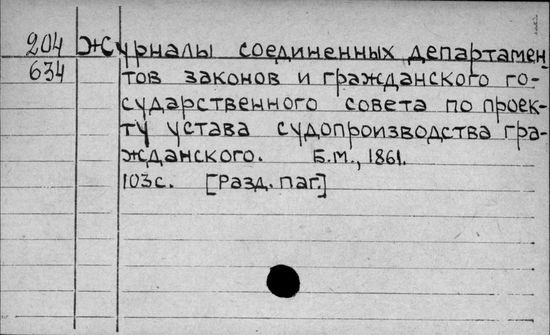 204 Журналы соединенных департамен-
634 тов законов и гражданского го-
сударственного совета по проек-
ту устава судопроизводства гра-
жданского. Б.М., 1861.
103с. [Разд. паг.]